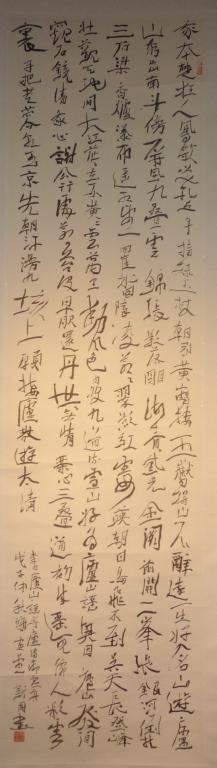 我本楚狂人鳳歌笑孔丘手持綠玉杖朝別黃鶴樓五嶽尋仙不辭遠一生好入名山遊廬
山秀出南斗傍屏風九疊雲錦張影落明湖青黛光金闕前開二峯長銀河倒掛
三石梁香爐瀑布遙相望迴崖沓嶂凌蒼蒼翠影紅霞映朝日鳥飛不到吳天長登高
壯觀天地間大江茫茫去不還黃雲萬里動風色白波九道流雪山好為廬山謠興因廬山發閒
窺石鏡清我心謝公行處蒼苔沒早服還丹世無情琴心三疊道初成遙見仙人彩雲
裏手把芙蓉朝玉京先期汗漫九垓上願接盧敖遊太清
李白廬山謠寄盧侍御虛舟
戊子仲秋